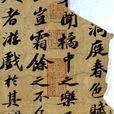 洞庭春色賦
吾聞橘中之樂
山豈霜餘之不
人者游戲於其